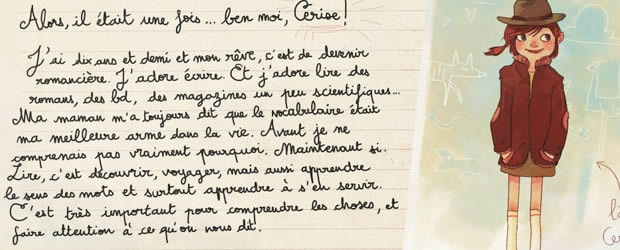 Alors, il était une fois... ben moi, Cerise!
J'ai dix ans et demi et mon rêve, c'est de devenir
romancière. J'adore écrire. Et j'adore lire des
romans, des bd, des magazines un peu scientifiques...
Ma maman m'a toujours dit que le vocabulaire était
ma meilleure arme dans la vie. Avant je ne
comprenais pas vraiment pourquoi. Maintenant si.
Lire, c'est découvrir, voyager, mais aussi apprendre
le sens des mots et surtout apprendre à s'en servir.
C'est très important pour comprendre les choses, et
faire attention à ce qu'on nous dit.